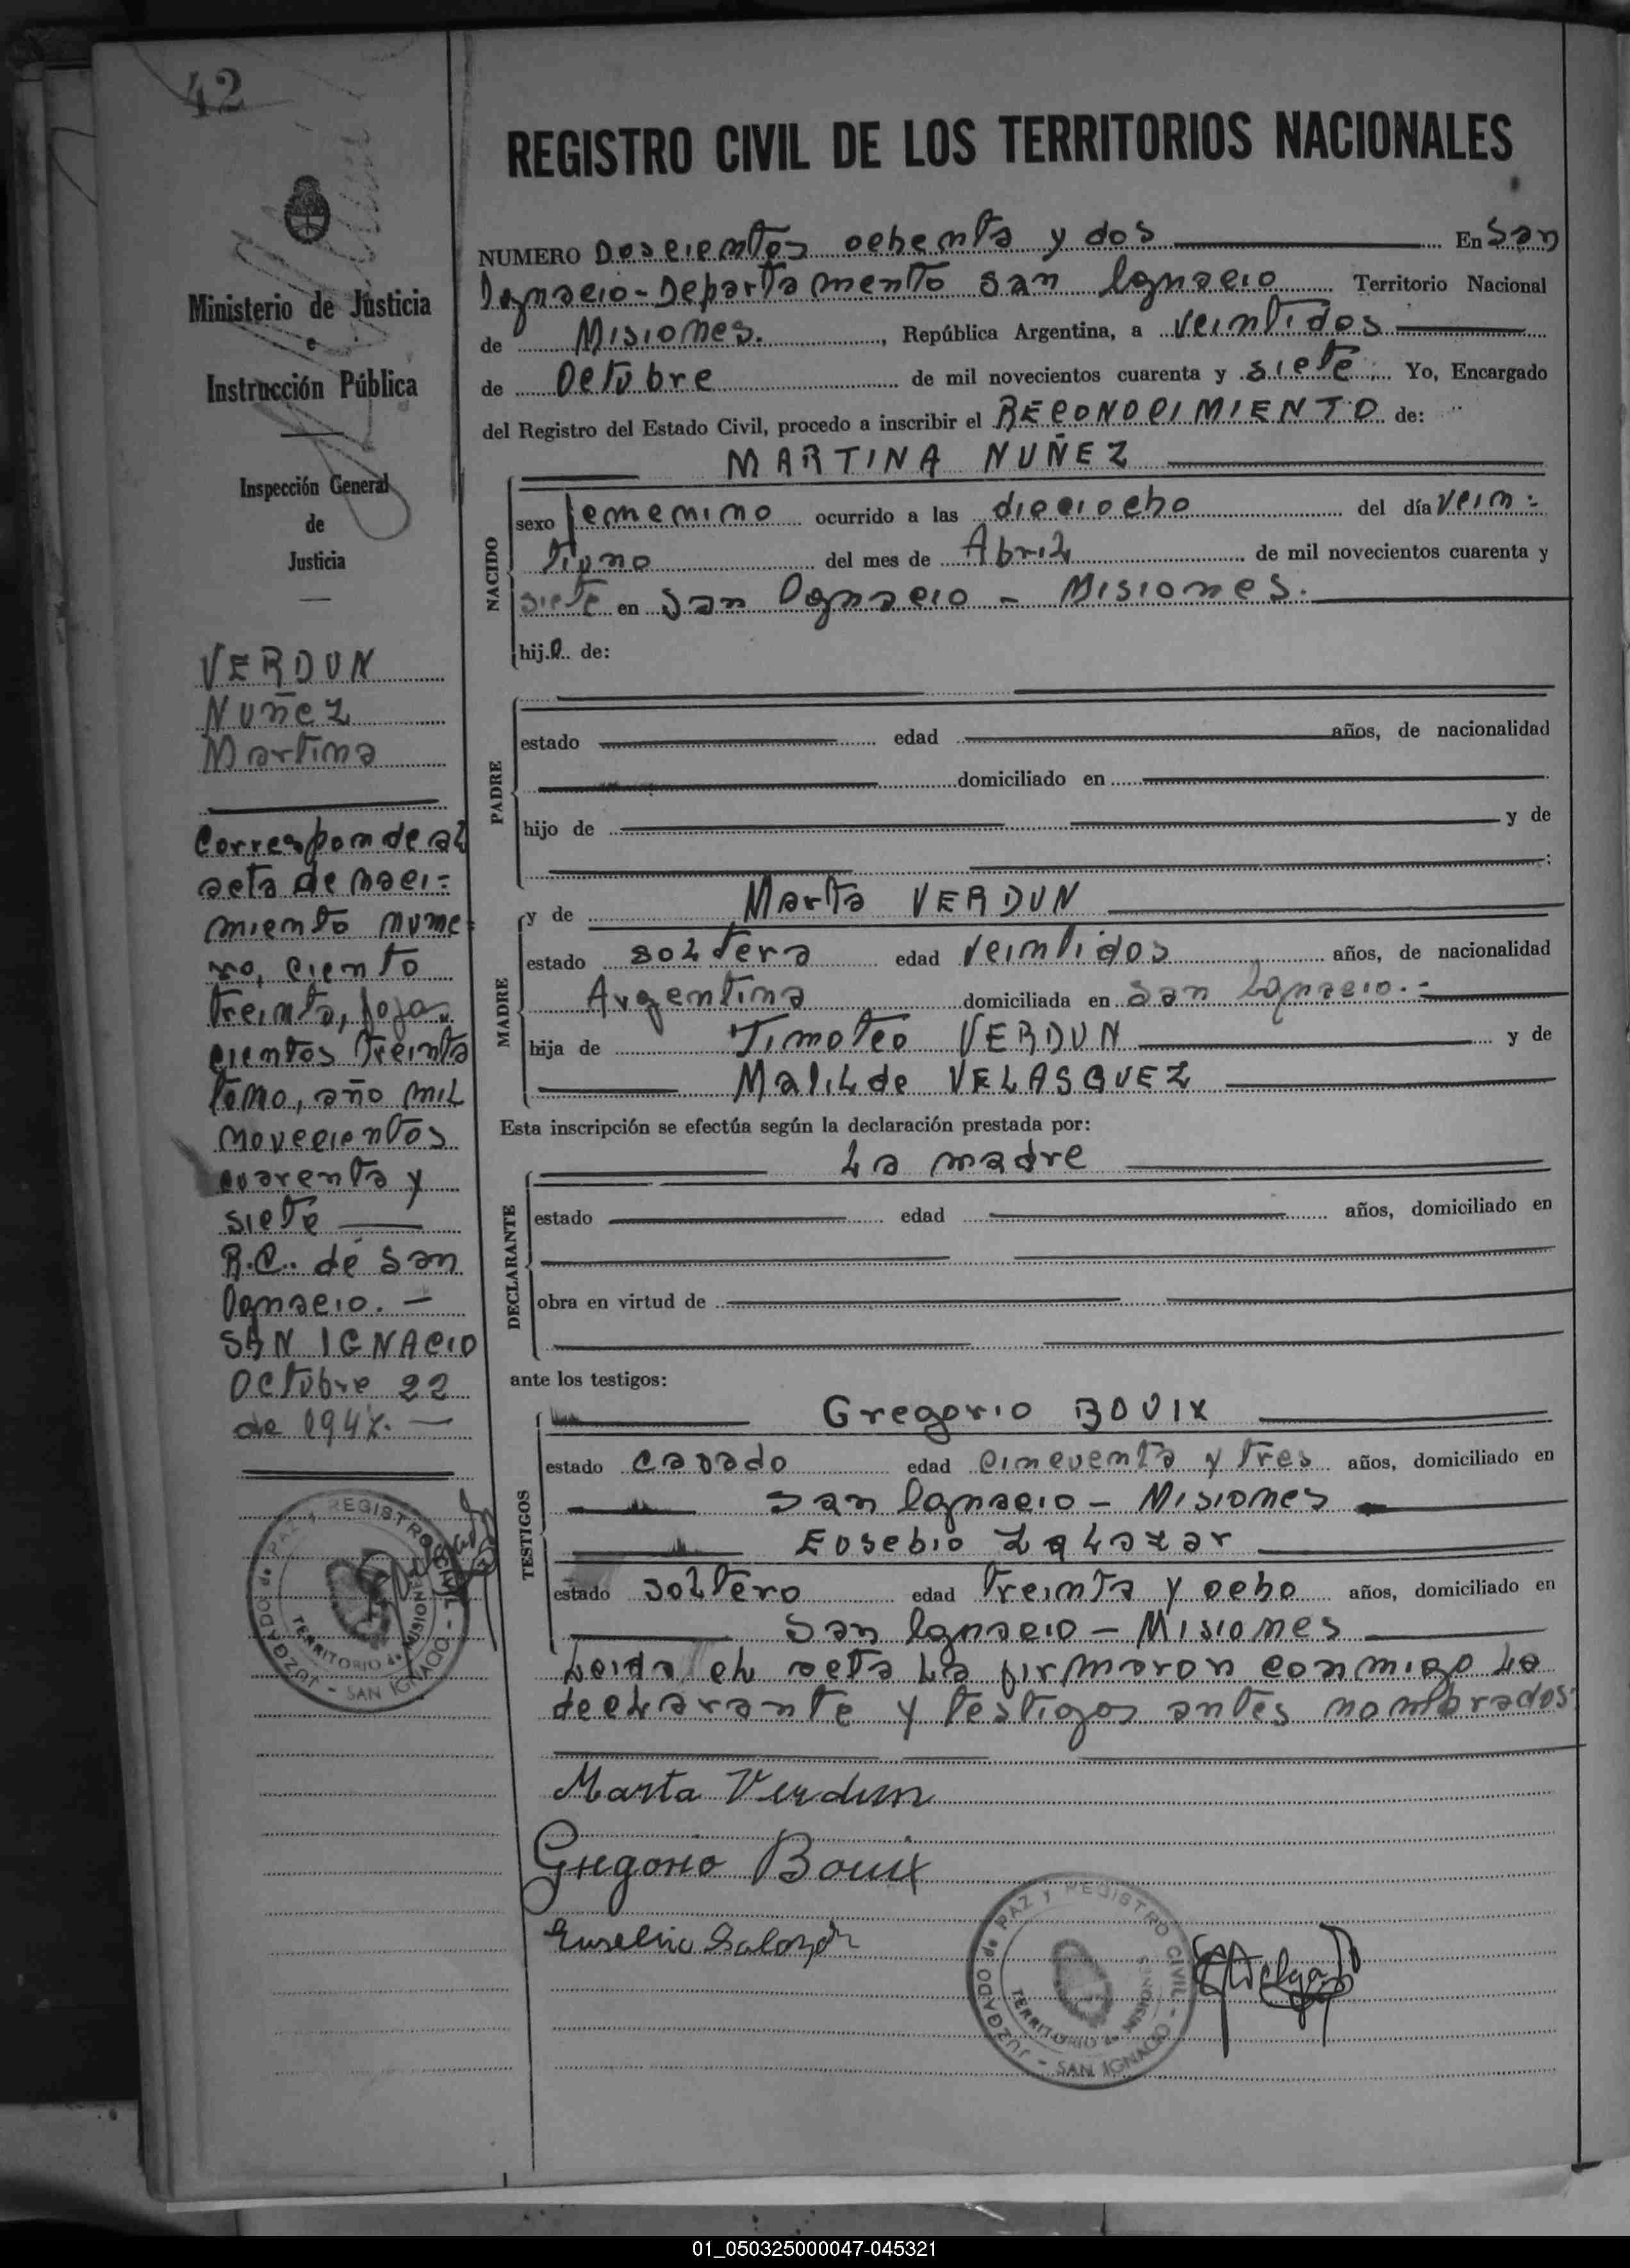 42
REGISTRO CIVIL DE LOS TERRITORIOS NACIONALES
NUMERO Doscientos ochenta y dos En San
Ignacio-Departamento San Ignacio Territorio Nacional
de Misiones., República Argentina, a veintidos
de Octubre de mil novecientos cuarenta y siete. Yo, Encargado
del Registro del Estado Civil, procedo a inscribir el RECONOCIMIENTO de:
MARTINA NUÑEZ
NACIDO
sexo femenino ocurrido a las dieciocho del día vein=
tiuno del mes de Abril de mil novecientos cuarenta y
siete en San Ignacio - Misiones.
hij.a. de:
PADRE
estado edad años, de nacionalidad
domiciliado en
hijo de y de
MADRE
y de Marta VERDUN
estado soltera edad veintidos años, de nacionalidad
Argentina domiciliada en San Ignacio.-
hija de Timoteo VERDUN y de
Matilde VELASQUEZ
Esta inscripción se efectúa según la declaración prestada por:
La madre
DECLARANTE
estado edad años, domiciliado en
obra en virtud de
ante los testigos:
TESTIGOS
Gregorio BOUIX
estado casado edad cincuenta y tres años, domiciliado en
San Ignacio - Misiones
Eusebio Zalazar
estado soltero edad treinta y ocho años, domiciliado en
San Ignacio - Misiones
Leida el acta la firmaron conmigo la
declarante y testigos antes nombrados
Marta Verdun
Gregorio Bouix
Eusebio Salazar
JUZGADO de PAZ y REGISTRO CIVIL - SAN IGNACIO -
TERRITORIO de MISIONES
Ministerio de Justicia
e
Instrucción Pública
Inspección General
de
Justicia
VERDUN
Nuñez
Martina
Corresponde al
acta de naci=
miento nume=
ro, ciento
treinta, foja
cientos treinta
tomo, año mil
novecientos
cuarenta y
siete
R.C. de San
Ignacio. -
SAN IGNACIO
Octubre 22
de 1947. -
JUZGADO de PAZ y REGISTRO CIVIL - SAN IGNACIO -
TERRITORIO de MISIONES
01_050325000047-045321